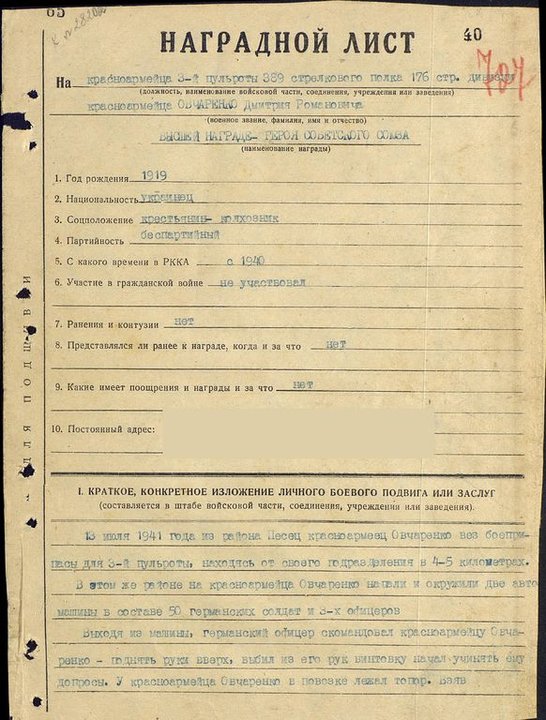 65
К № 28200
40
НАГРАДНОЙ ЛИСТ
707
На красноармейца 3-й пульроты 389 стрелкового полка 176 стр. дивизии
(должность, наименование войсковой части, соединения, учреждения или заведения)
красноармейца ОВЧАРЕНКО Дмитрия Романовича
(военное звание, фамилия, имя и отчество)
ВЫСШЕЙ НАГРАДЕ- ГЕРОЯ СОВЕТСКОГО СОЮЗА
(наименование награды)
1. Год рождения 1919
2. Национальность украинец
3. Соцположение крестьянин- колхозник
4. Партийность беспартийный
5. С какого времени в РККА с 1940
6. Участие в гражданской войне не участвовал
7. Ранения и контузии нет
8. Представлялся ли ранее к награде, когда и за что нет
9. Какие имеет поощрения и награды и за что нет
10. Постоянный адрес:
I. КРАТКОЕ, КОНКРЕТНОЕ ИЗЛОЖЕНИЕ ЛИЧНОГО БОЕВОГО ПОДВИГА ИЛИ ЗАСЛУГ
(составляется в штабе войсковой части, соединения, учреждения или заведения).
13 июля 1941 года из района Песец красноармеец Овчаренко вез боепри-
пасы для 3-й пульроты, находясь от своего подразделения в 4-5 километрах.
В этом же районе на красноармейца Овчаренко напали и окружили две авто
машины в составе 50 германских солдат и 3-х офицеров
Выходя из машины, германский офицер скомандовал красноармейцу Овча-
ренко - поднять руки вверх, выбил из его рук винтовку начал учинять ему
допросы. У красноармейца Овчаренко в повозке лежал топор. Взяв
ДЛЯ ПОДШИВКИ